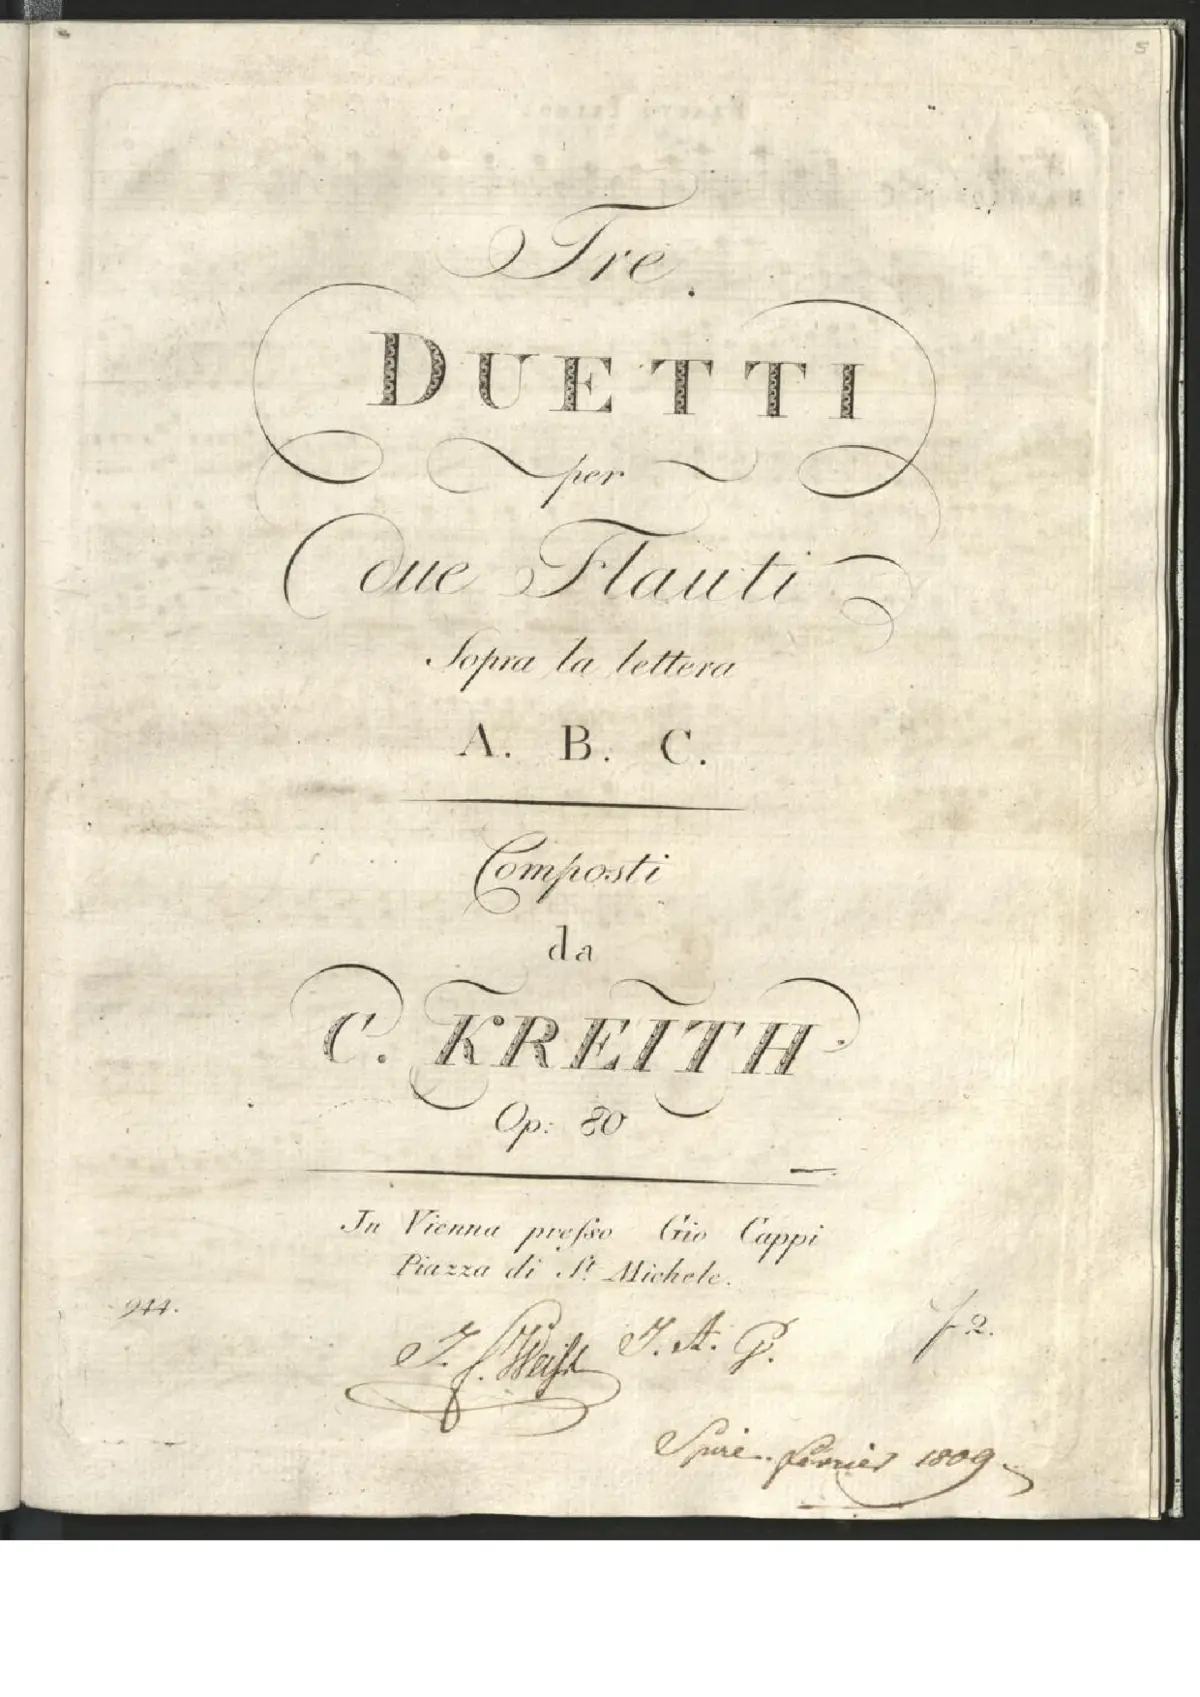 5
Tre
DUETTI
per
due Flauti
Sopra la lettera
A. B. C.
Composti
da
C. KREITH.
Op: 80
In Vienna presso Gio Cappi
Piazza di St. Michele.
944.
f 2.
J. A. G.
1809